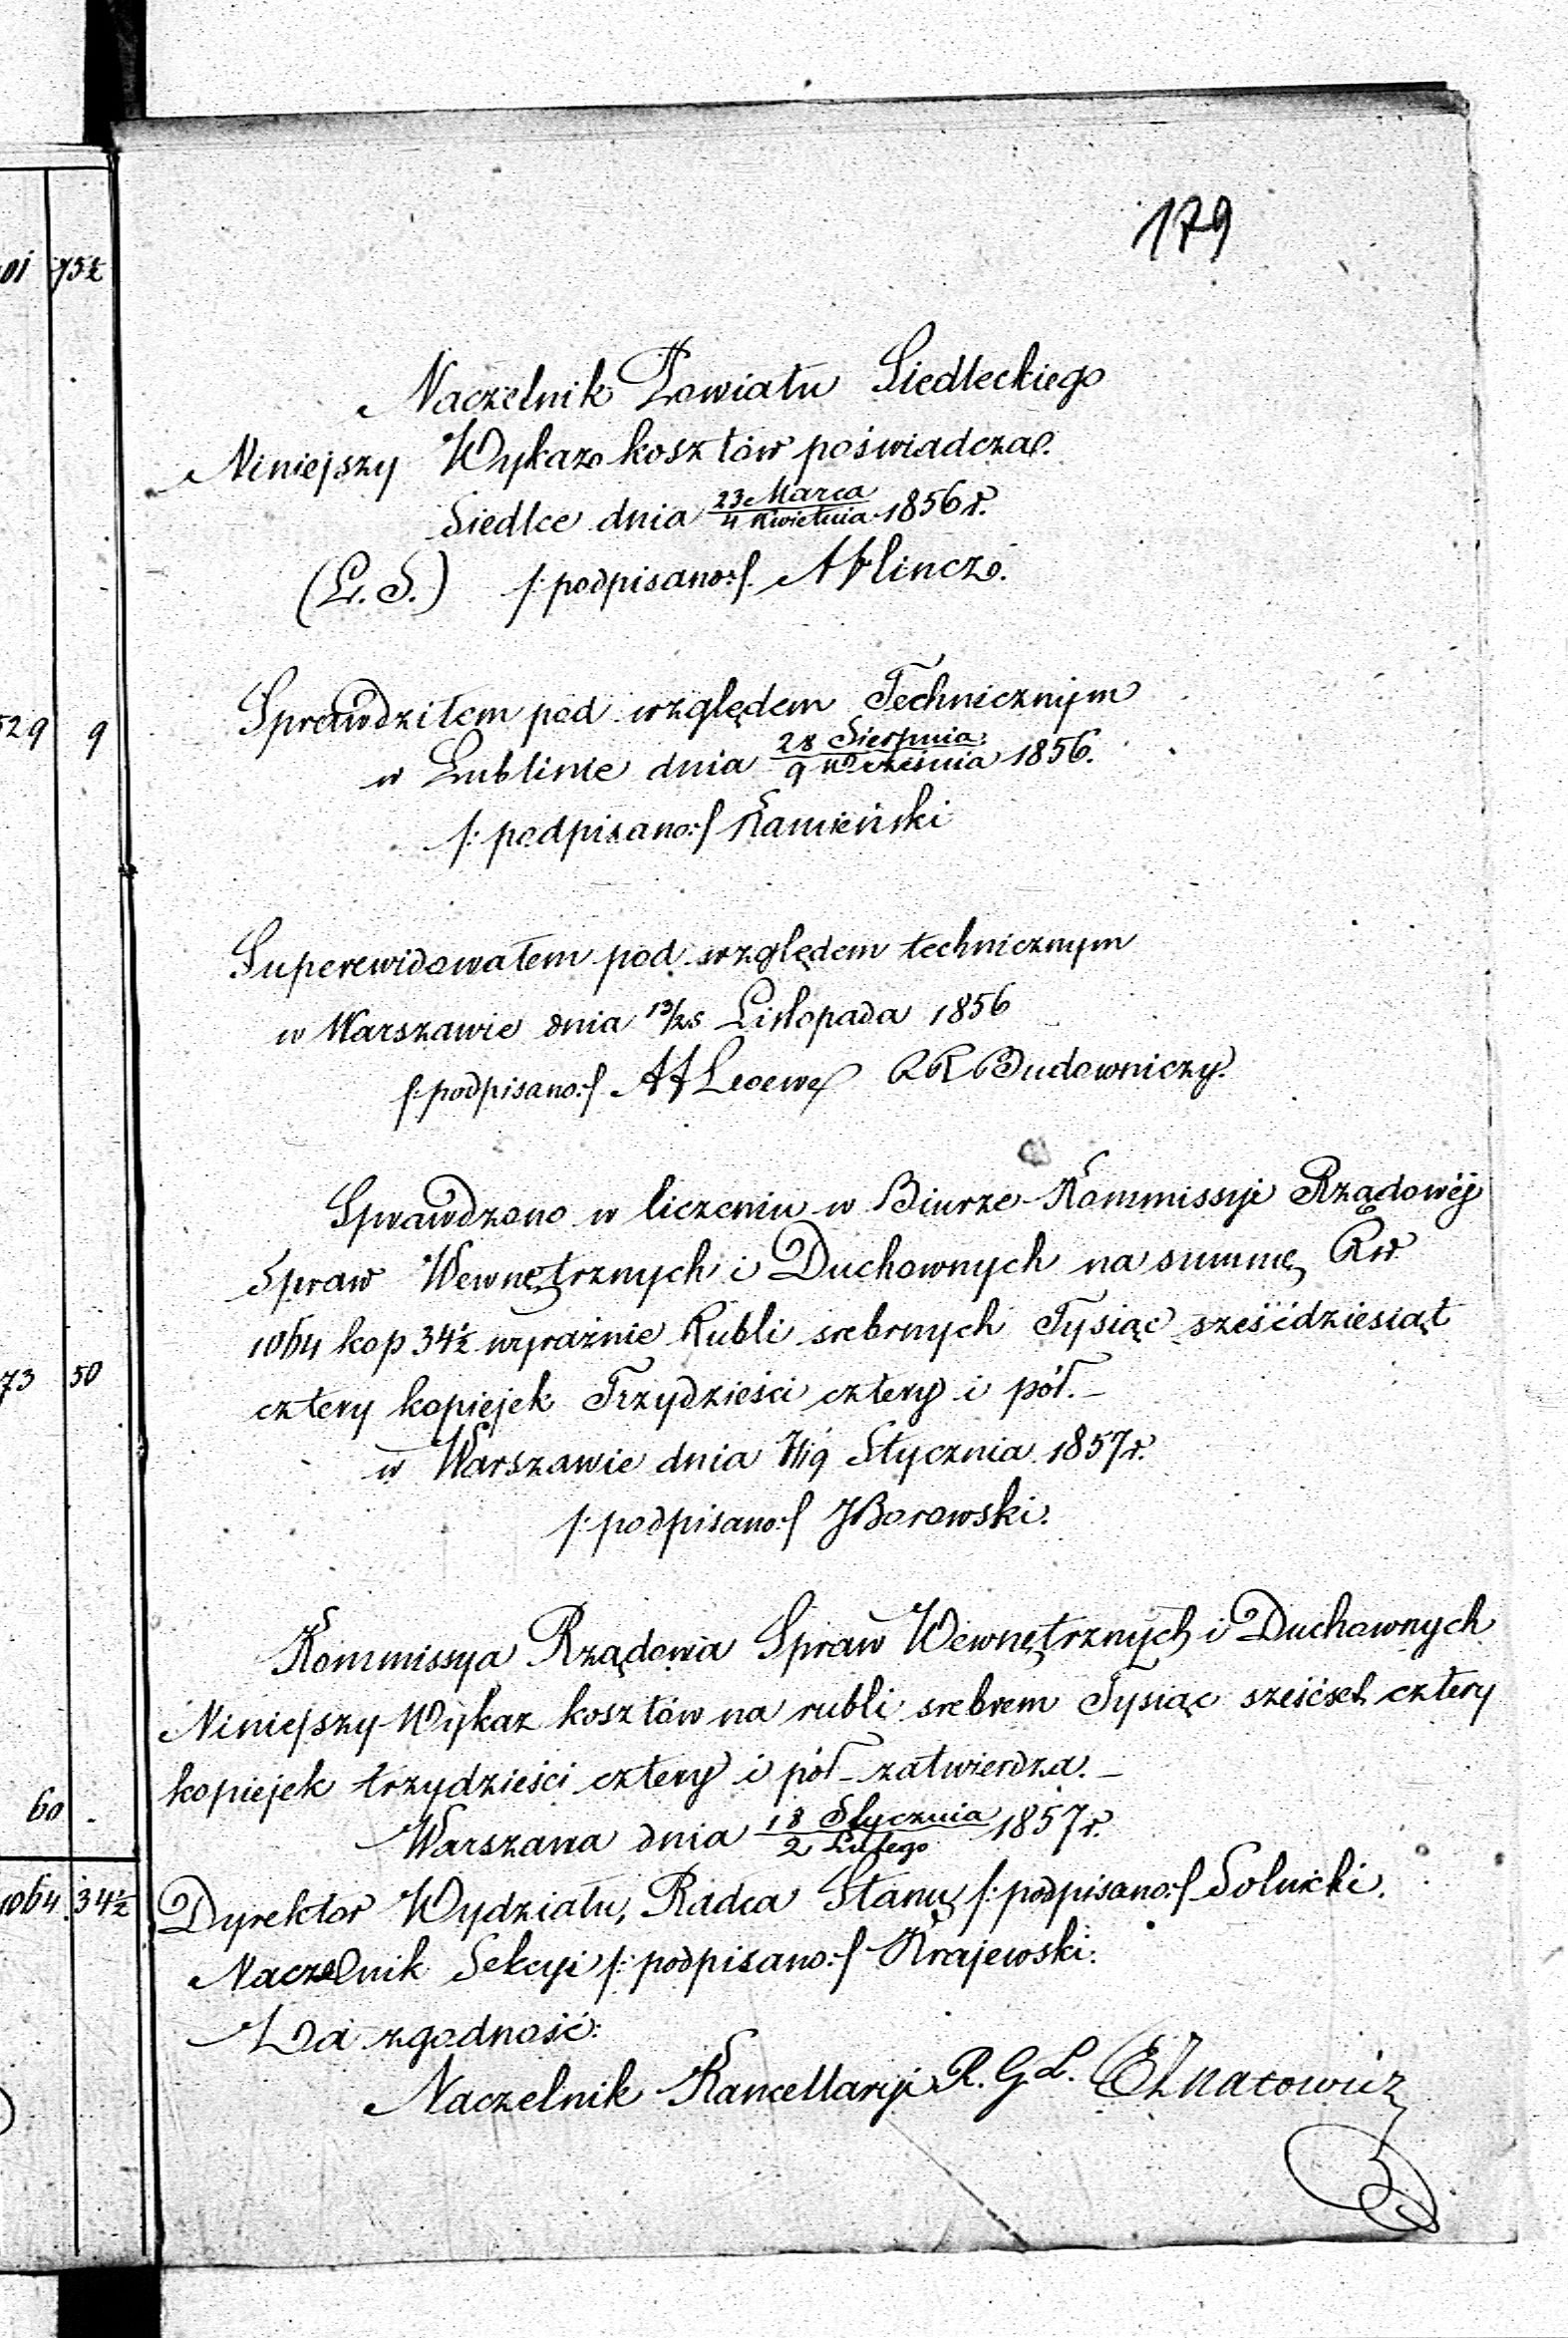 179
01 75½
Naczelnik Powiatu Siedleckiego
Niniejszy Wykaz kosztów poświadcza.
Siedlce dnia 23 Marca / 4 Kwietnia 1856 r.
(L. S.) /:podpisano:/
529 9
Sprawdziłem pod względem Technicznym
w Lublinie dnia 28 Sierpnia / 9 Września 1856.
/:podpisano:/ Kamieński
Superewidowałem pod względem technicznym
w Warszawie dnia 13/25 Listopada 1856
/:podpisano:/ Budowniczy.
Sprawdzono w liczeniu w Biurze Kommissyi Rządowéj
Spraw Wewnętrznych i Duchownych na summę Rs
1064 kop 34½ wyraźnie Rubli srebrnych Tysiąc sześćdziesiąt
73 50
cztery kopiejek Trzydzieści cztery i pół.–
w Warszawie dnia 7/19 Stycznia 1857 r.
/:podpisano:/ JBorowski.
Kommissya Rządowa Spraw Wewnętrznych i Duchownych
Niniejszy Wykaz kosztów na rubli srebrem Tysiąc cztery
kopiejek trzydzieści cztery i pół – zatwierdza.–
60 -
Warszawa dnia 18 Stycznia / 2 Lutego 1857 r.
1064 34½
Dyrektor Wydziału, Radca Stanu /:podpisano:/ Solnicki.
Naczelnik Sekcyi /:podpisano:/ Krajewski.
Za zgodność:
Naczelnik Kancellaryi R. G. L.